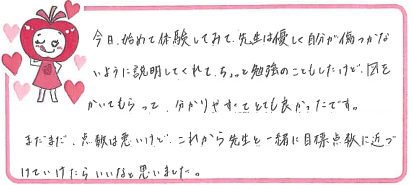 今日、始めて体験してみて、先生は優しく自分が傷つかな
いように説明してくれて、ちょっと勉強のこともしたけど、図を
かいてもらって、分かりやすくてとても良かったです。
まだまだ、点数は悪いけど、これから先生と一緒に目標点数に近づ
けていけたらいいなと思いました。